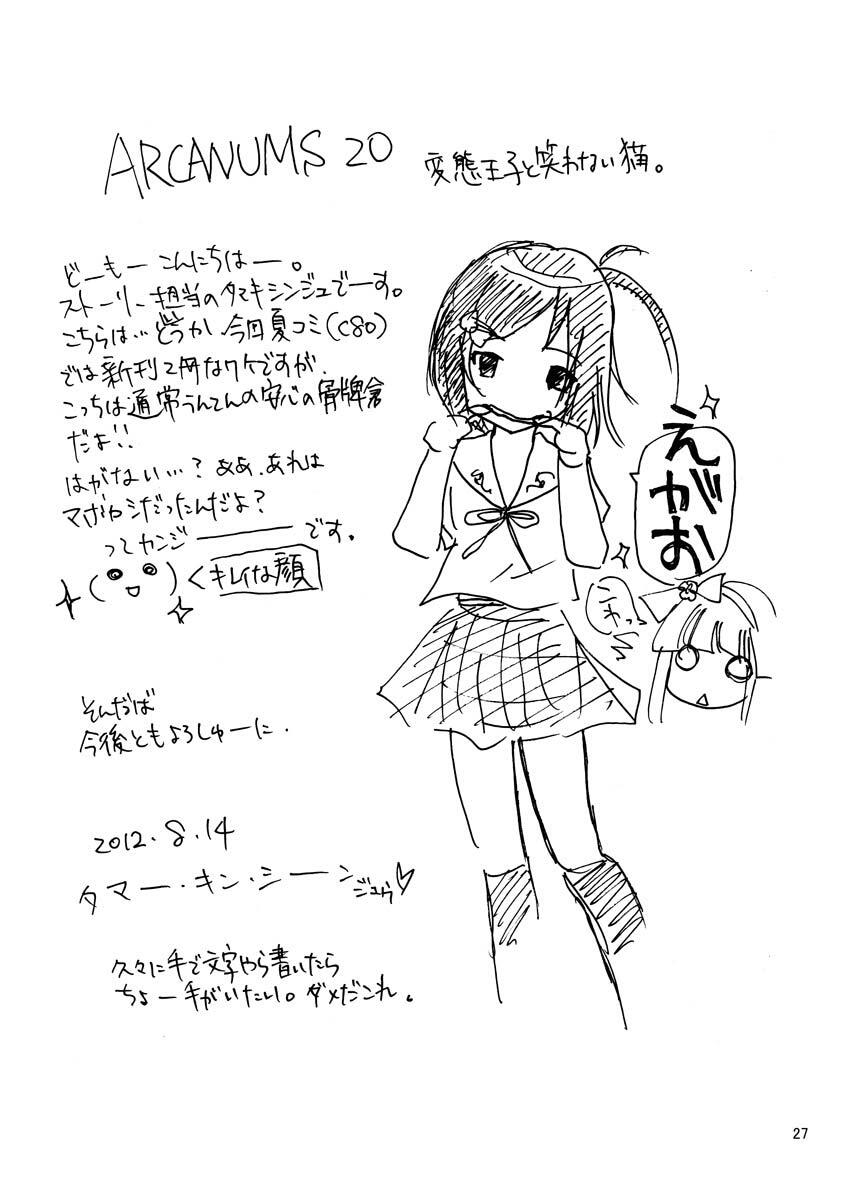 ARCANUMS 20
変態王子と笑わない猫。
どーもー こんにちはー。
ストーリー担当のタマキシンジュでーす。
こちらは…どうか 今回夏コミ(C80)
では新刊2冊なワケですが、
こっちは通常うんてんの安心の骨牌倉
だよ!!
はがない…? ああ、あれは
マボロシだったんだよ?
ってカンジーーーです。
キレイな顔
えがお
こわっ
そんだば
今後ともよろしゅーに.
2012.8.14
タマー・キン・シーン ジュゥ♡
久々に手で文字やら書いたら
ちょー手がいたい。ダメだこれ。
27